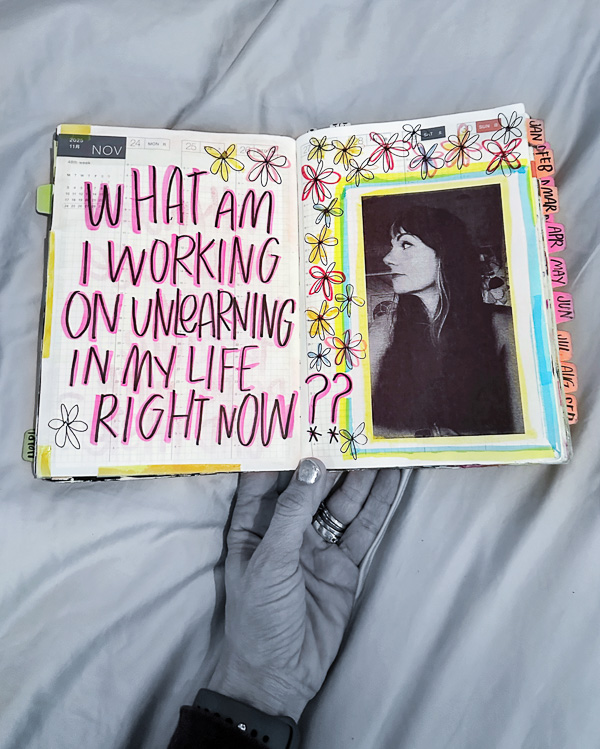 2025
11月 NOV
24 MON
25
SAT
SUN
WHAT AM
I WORKING
ON UNLEARNING
IN MY LIFE
RIGHT NOW ??
**
JAN
FEB
MAR
APR
MAY
JUN
JUL
AUG
SEP